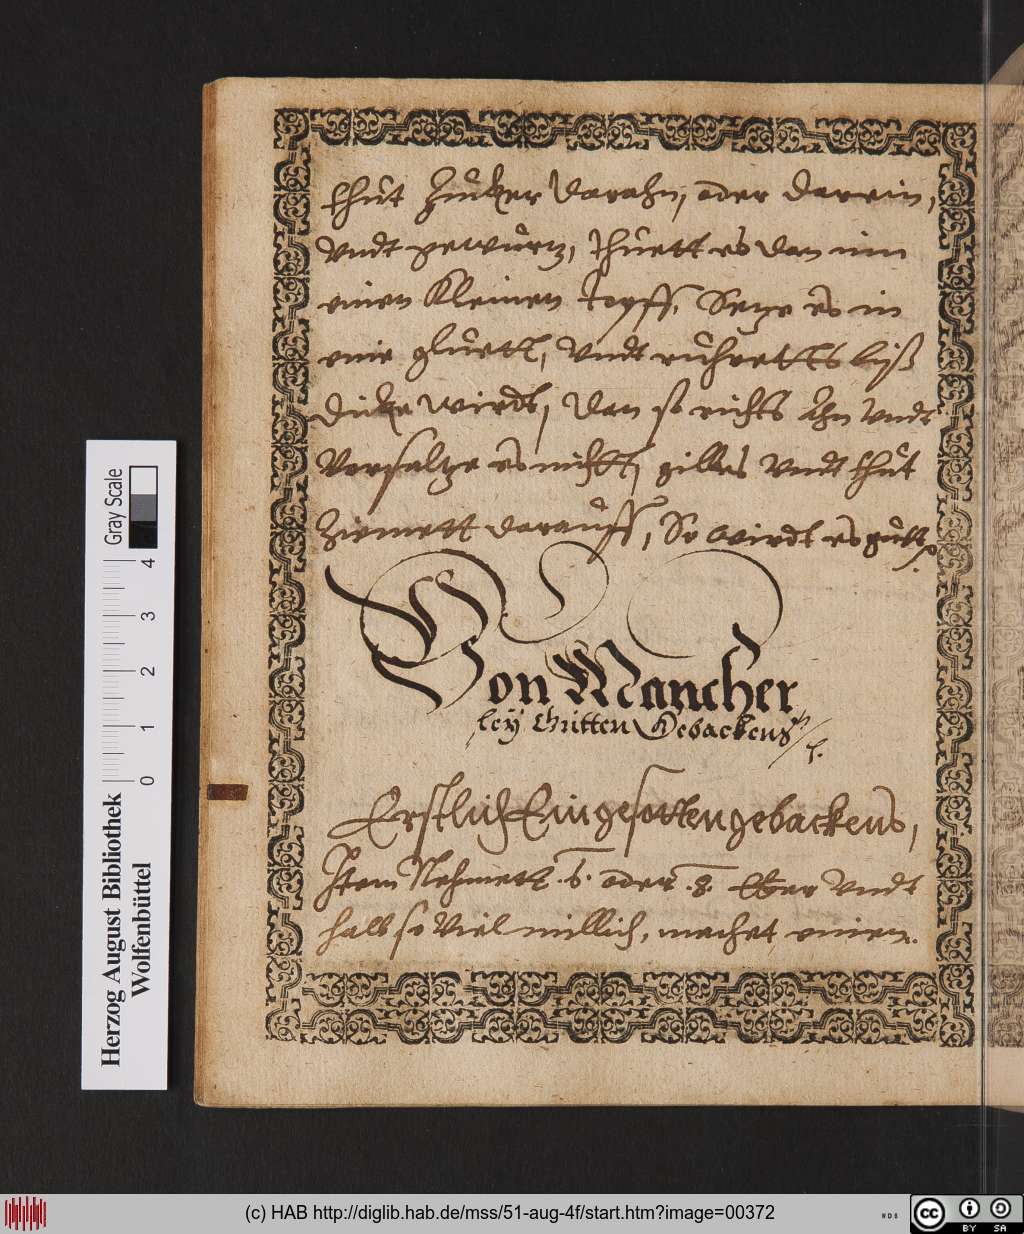 thut Zucker darahn, oder darein,
vndt gewürtz, thuett es dan inn
einen kleinen topff, Setze es in
eine gluett, vndt ruhretts biß
dicke wirdt, dan so richts ahn vndt
versaltze es nichtt, gilbes vndt thut
Ziemett darauff, So wirdt es gutt
Von Mancher
leÿ Gritten Gebackens
Erstlich Eingesotten gebackens,
Item Nehmett .6. oder .8. Eÿer vndt
halb so viel millich, machet einen.
Gray Scale
4
3
2
1
0
Herzog August Bibliothek
Wolfenbüttel
(c) HAB http://diglib.hab.de/mss/51-aug-4f/start.htm?image=00372
WDB
cc BY SA